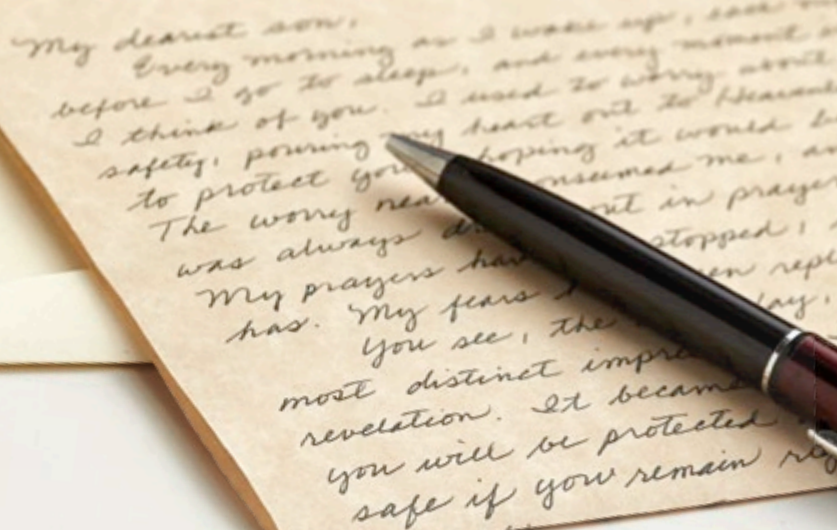 My dearest son,
Every morning as I wake up,
before I go to sleep, and every moment
I think of you. I used to worry about
safety, pouring my heart out to Heaven
to protect you hoping it would
The worry consumed me,
was always out in prayer
My prayers stopped,
has. My fears
You see, the
most distinct
revelation. It became
you will be protected
safe if you remain